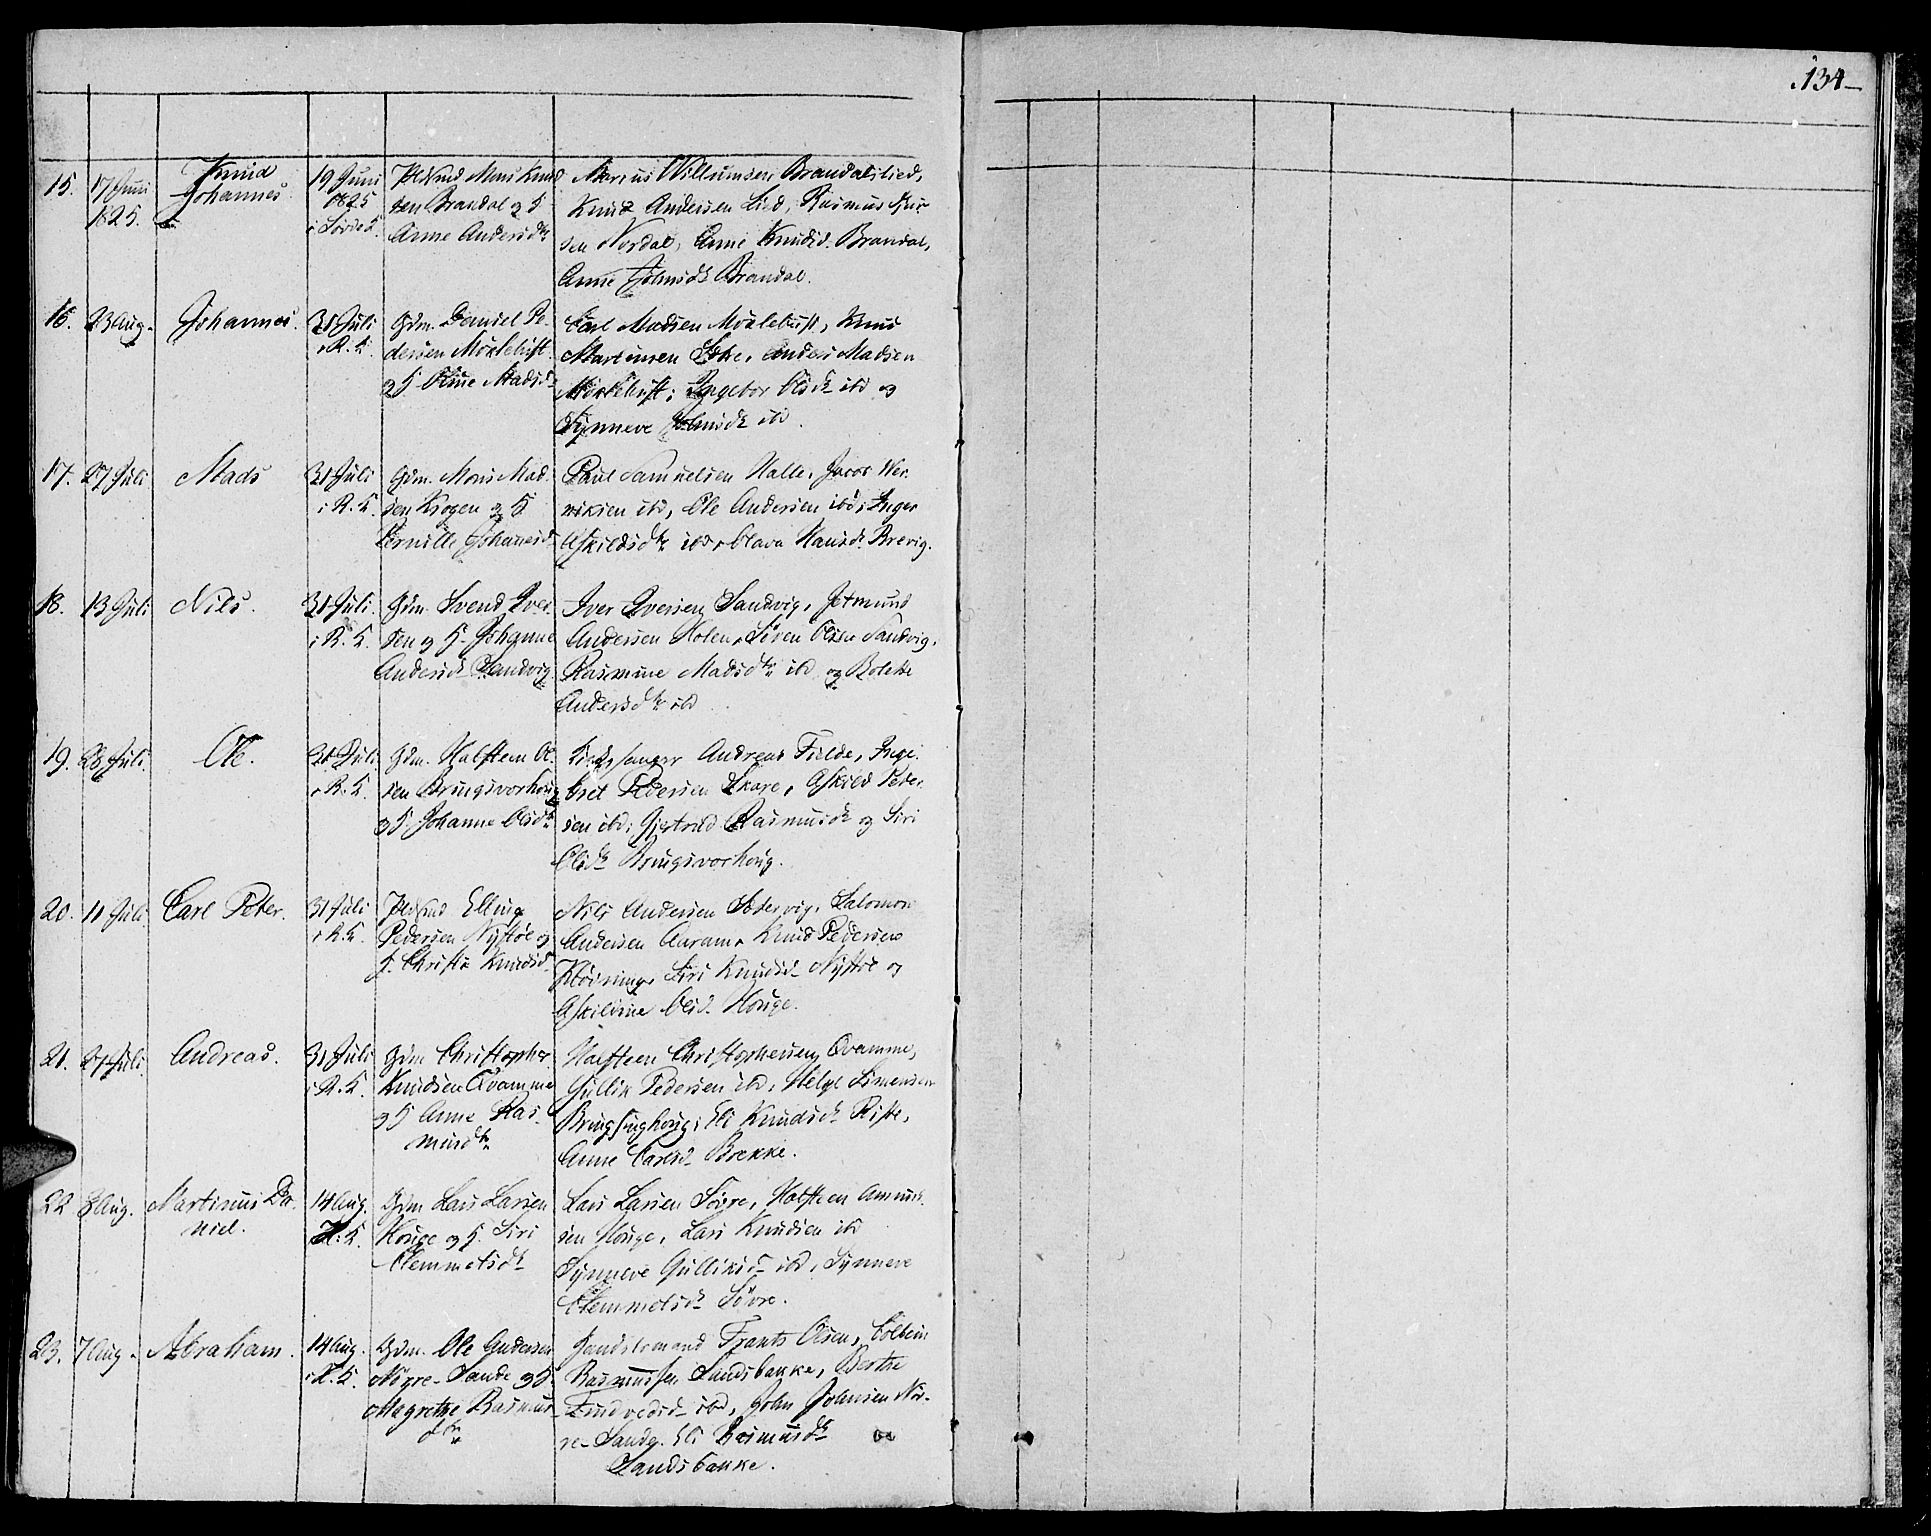 134
15. 17 Juni 1825. Knud Johannes 19 Juni 1825 Mons Knud
sen Brandal og H
Anne Andersd.
Marius Willumsen Brandalslied,
Knud Andersen Lied, Rasmus
sen Nordal, Anne Knudsd. Brandal,
Anne Johnsd. Brandal.
16. 23 Aug. Johannes. 31 Juli i R. K. Gdm. Daniel Pe-
dersen Möklebust
og H Oline Madsd.
Carl Madsen Möklebust, Knud
Martinusen Eske, Anders Madsen
Möklebust, Ingebor Olsd. ibd og
Synneve Johnsd. ibd.
17. 27 Juli Mads 31 Juli i R. K. Gdm. Mons Mad-
sen Krogen og H
Pernille Johannesd.
Paul Samuelsen Halle, Jacob Hen-
riksen ibd, Ole Andersen ibd, Inger
Askildsd. ibd, Olava Hansd. Brevig.
18. 13 Juli Nils. 31 Juli i R. K. Gdm. Svend Iver-
sen og H. Johanne
Andersd. Sandvig
Iver Iversen Sandvig, Jetmund
Andersen Holen, Søren Olsen Sandvig,
Rasmine Madsd. ibd og Bolette
Andersd. ibd
19. 28 Juli. Ole. 31 Juli. i R. K. Gdm. Halsteen Ol-
sen Bringsvorhoug
og H Johanne Olsd.
Kirkesanger Andreas Fielde, Inge-
bret Pedersen Skare, Askild Peder-
sen ibd, Gjertrud Rasmusd. og Siri
Olsd. Bringsvorhoug.
20. 11 Juli Carl Peter. 31 Juli i R. K. Elling
Pedersen Nystøe og
H. Christi Knudsd.
Nils Andersen Sætervig, Salomon
Andersen Aaram, Knud Pedersen
Siri Knudsd. Nystøe og
Askildine Olsd. Houge.
21. 27 Juli. Andreas. 31 Juli i R. K. Gdm Christopher
Knudsen Qvamme
og H Anne Ras-
musd.
Halsteen Christophersen Qvamme,
Gullik Pedersen ibd, Helge Simensen
Bringsinghoug, Eli Knudsd. Riste,
Anne Carlsd. Brekke.
22 8 Aug. Martinus Da-
niel. 14 Aug. i R. K. Gdm Lars Larsen
Houge og H. Siri
Clemmetsd.
Lars Larsen Sövre, Halsteen Amund-
sen Houge, Lars Knudsen ibd
Synneve Gulliksd. ibd, Synneve
Clemmetsd. Sövre.
23. 7 Aug. Abraham. 14 Aug. i R. K. Gdm. Ole Gundersen
Nöyre-Sande og H.
Magrethe Rasmus-
dtr
Handelsmand Frants Olsen, Colbein
Rasmussen Sandsbakke, Berthe
Sindvedsd. ibd, John Johnsen Nö-
re-Sande, Eli Rasmusd.
Sandsbakke.